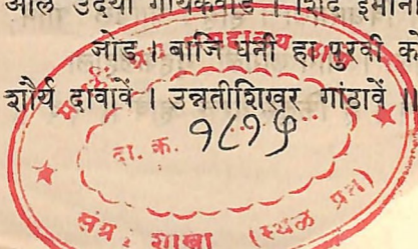 आले उदया गायकवाड । शिंदे इमानी
जोड । बाजि धनी हा पुरवी को
शौर्य दावावें । उन्नतीशिखर गांठावें ॥
दा. क्र. १८१५
संग्र. शाखा (स्थळ प्रत)